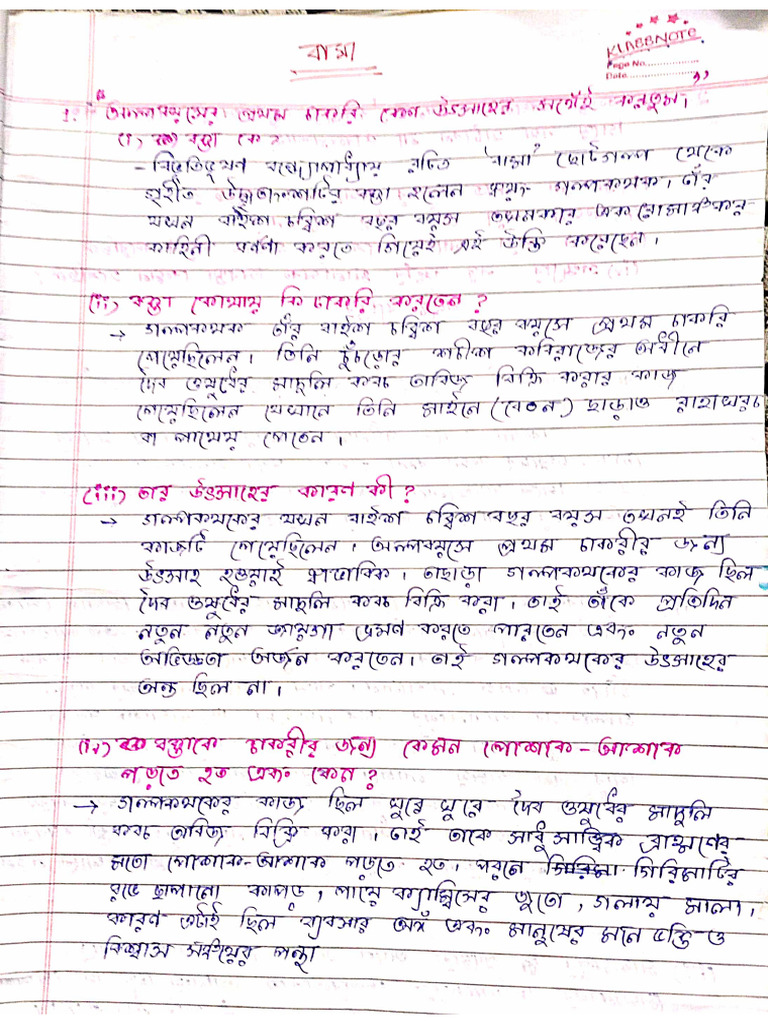 বামা
KLASSNOTE
Page No.
Date
1. "অল্পবয়সের প্রথম চাকরি বেশ উৎসাহের সঙ্গেই করতুম।"
(i) বক্তা কে?
- বিভূতিভূষণ বন্দ্যোপাধ্যায় রচিত 'বামা' ছোটগল্প থেকে
গৃহীত উদ্ধৃতাংশটির বক্তা হলেন স্বয়ং গল্পকথক। তাঁর
যখন বাইশ চব্বিশ বছর বয়স তখনকার এক রোমাঞ্চকর
কাহিনী বর্ণনা করতে গিয়েই এই উক্তি করেছেন।
(ii) বক্তা কোথায় কি চাকরি করতেন?
→ গল্পকথক তাঁর বাইশ চব্বিশ বছর বয়সে প্রথম চাকরি
পেয়েছিলেন। তিনি চুঁচড়োর শচীশ কবিরাজের অধীনে
দৈব ওষুধের মাদুলি কবচ তাবিজ বিক্রি করার কাজ
পেয়েছিলেন যেখানে তিনি মাইনে (বেতন) ছাড়াও রাহাখরচ
বা পাথেয় পেতেন।
(iii) তার উৎসাহের কারণ কী?
→ গল্পকথকের যখন বাইশ চব্বিশ বছর বয়স তখনই তিনি
কাজটি পেয়েছিলেন। অল্পবয়সে প্রথম চাকরীর জন্য
উৎসাহ হওয়াই স্বাভাবিক। তাছাড়া গল্পকথকের কাজ ছিল
দৈব ওষুধের মাদুলি কবচ বিক্রি করা। তাই তাঁকে প্রতিদিন
নতুন নতুন জায়গা ভ্রমণ করতে পারতেন এবং নতুন
অভিজ্ঞতা অর্জন করতেন। তাই গল্পকথকের উৎসাহের
অন্ত ছিল না।
(iv) বক্তাকে চাকরীর জন্য কেমন পোশাক-আশাক
পড়তে হত এবং কেন?
→ গল্পকথকের কাজ ছিল ঘুরে ঘুরে দৈব ওষুধের মাদুলি
কবচ তাবিজ বিক্রি করা। তাই তাকে সাধু সাত্ত্বিক ব্রাহ্মণের
মতো পোশাক-আশাক পড়তে হত। পরনে গিরিমাটির
রঙে ছোপানো কাপড়, পায়ে ক্যাম্বিসের জুতো, গলায় মালা।
কারণ এটাই ছিল ব্যবসার অঙ্গ এবং মানুষের মনে ভক্তি ও
বিশ্বাস সঞ্চয়ের পন্থা